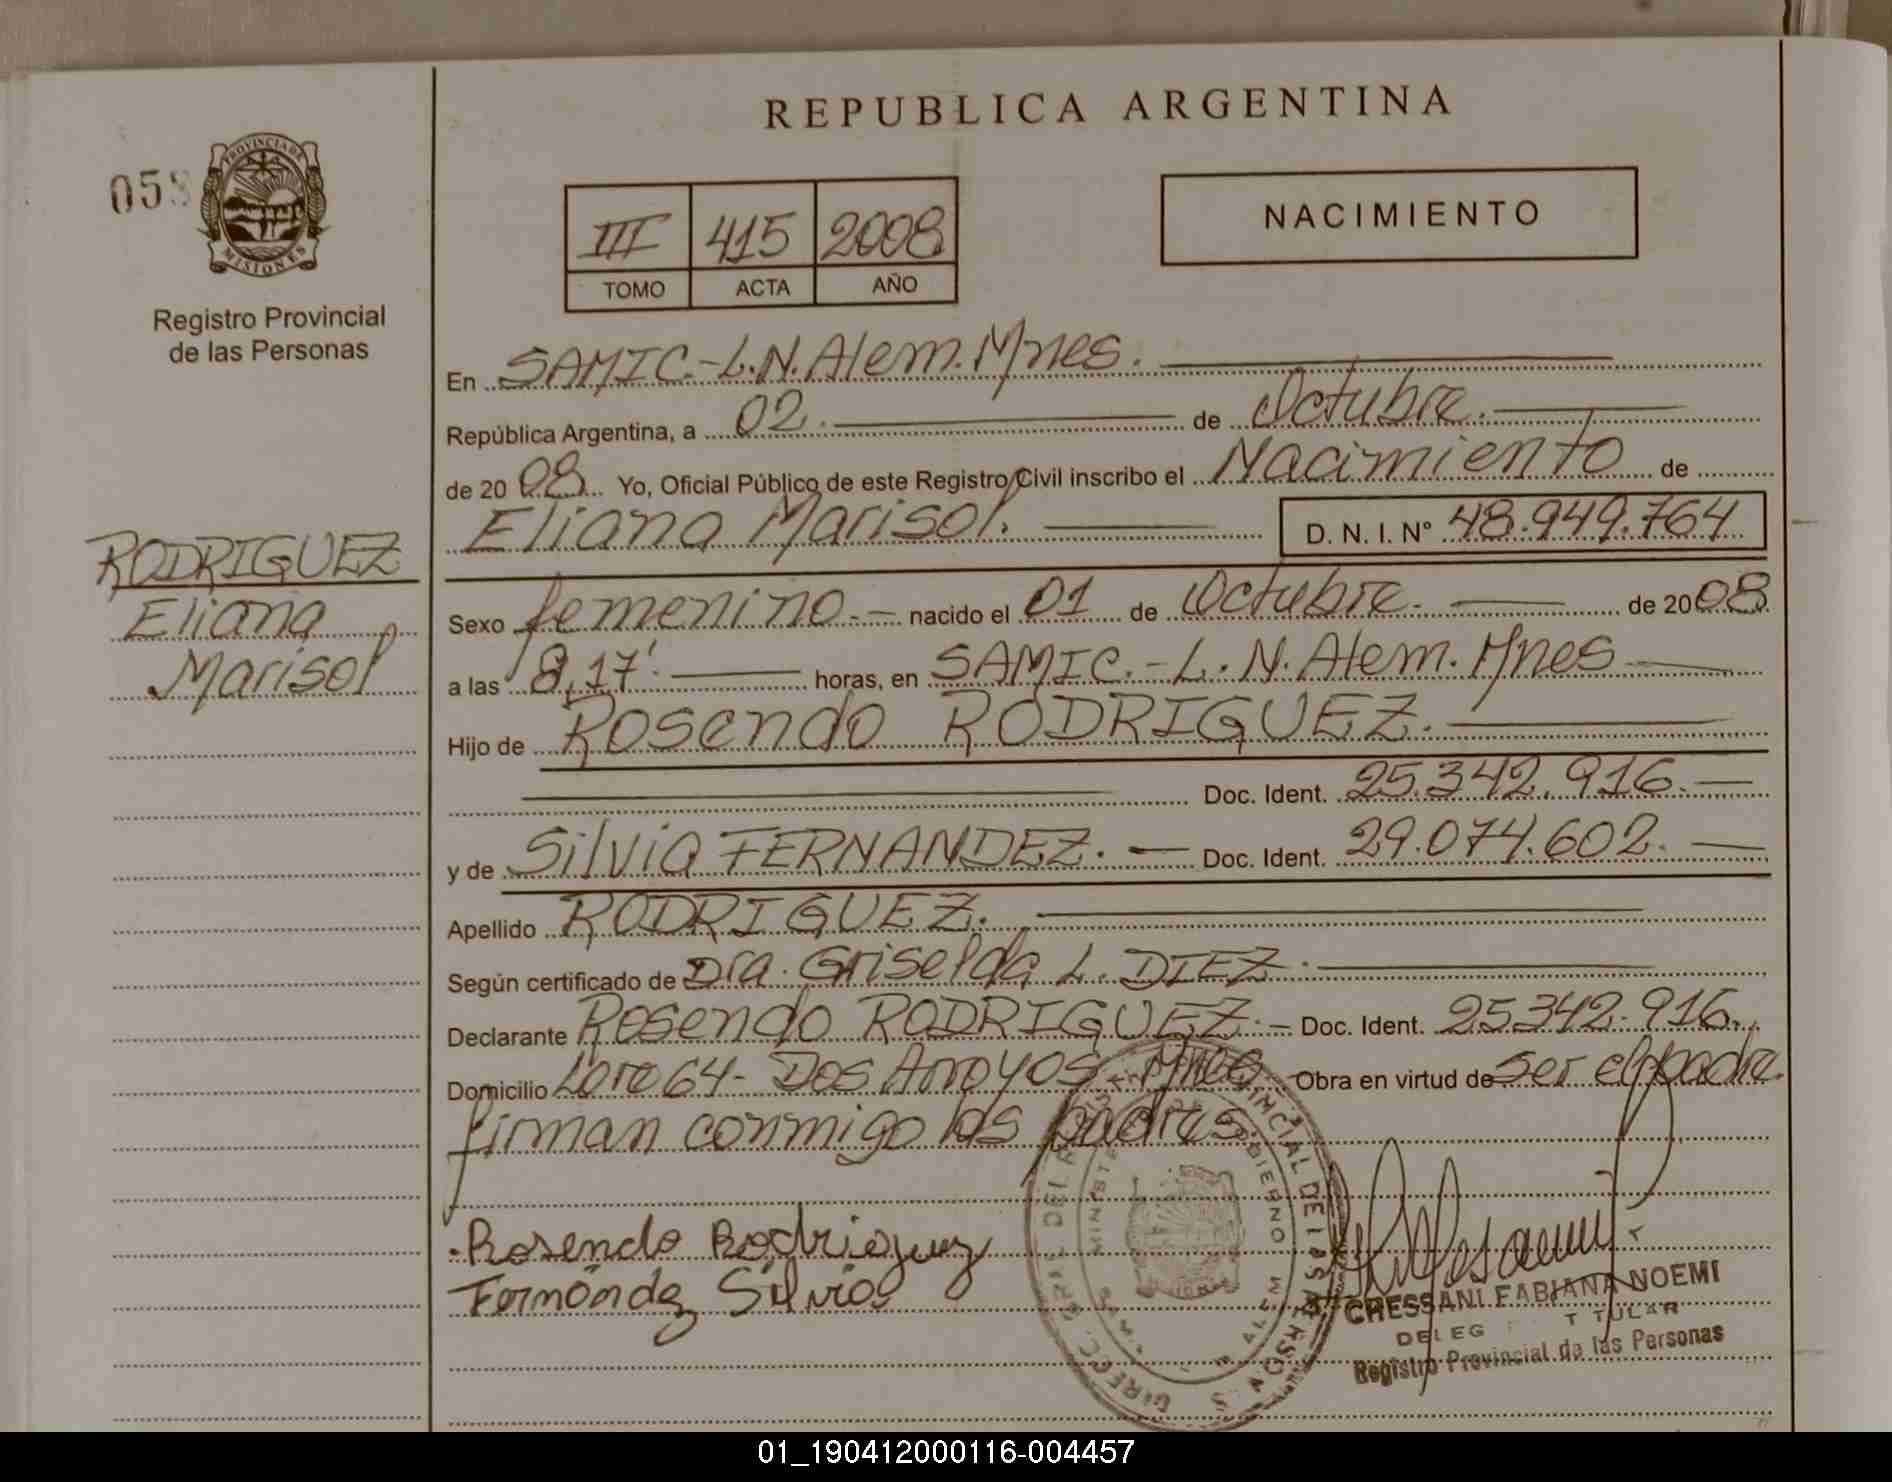 REPUBLICA ARGENTINA
PROVINCIA DE
MISIONES
Registro Provincial
de las Personas
NACIMIENTO
III 415 2008
TOMO ACTA AÑO
En SAMIC.-L.N.Alem.Mnes.
República Argentina, a 02. de Octubre.
de 2008 Yo, Oficial Público de este Registro Civil inscribo el Nacimiento de
Eliana Marisol. D. N. I. N° 48.949.764
RODRIGUEZ
Eliana
Marisol
Sexo femenino.- nacido el 01 de Octubre. de 2008
a las 8,17'. horas, en SAMIC.-L.N.Alem.Mnes
Hijo de Rosendo RODRIGUEZ.
Doc. Ident. 25.342.916.-
y de Silvia FERNANDEZ.- Doc. Ident. 29.074.602.-
Apellido RODRIGUEZ.
Según certificado de Dra. Griselda L. DIEZ.
Declarante Rosendo RODRIGUEZ.- Doc. Ident. 25342.916.
Domicilio Lote 64- Dos Arroyos Mnes Obra en virtud de ser el padre.
firman conmigo los padres.
Rosendo Rodriguez
Fernández Silvia
CHESSANI FABIANA NOEMI
DELEG TULAR
Registro Provincial de las Personas
01_190412000116-004457